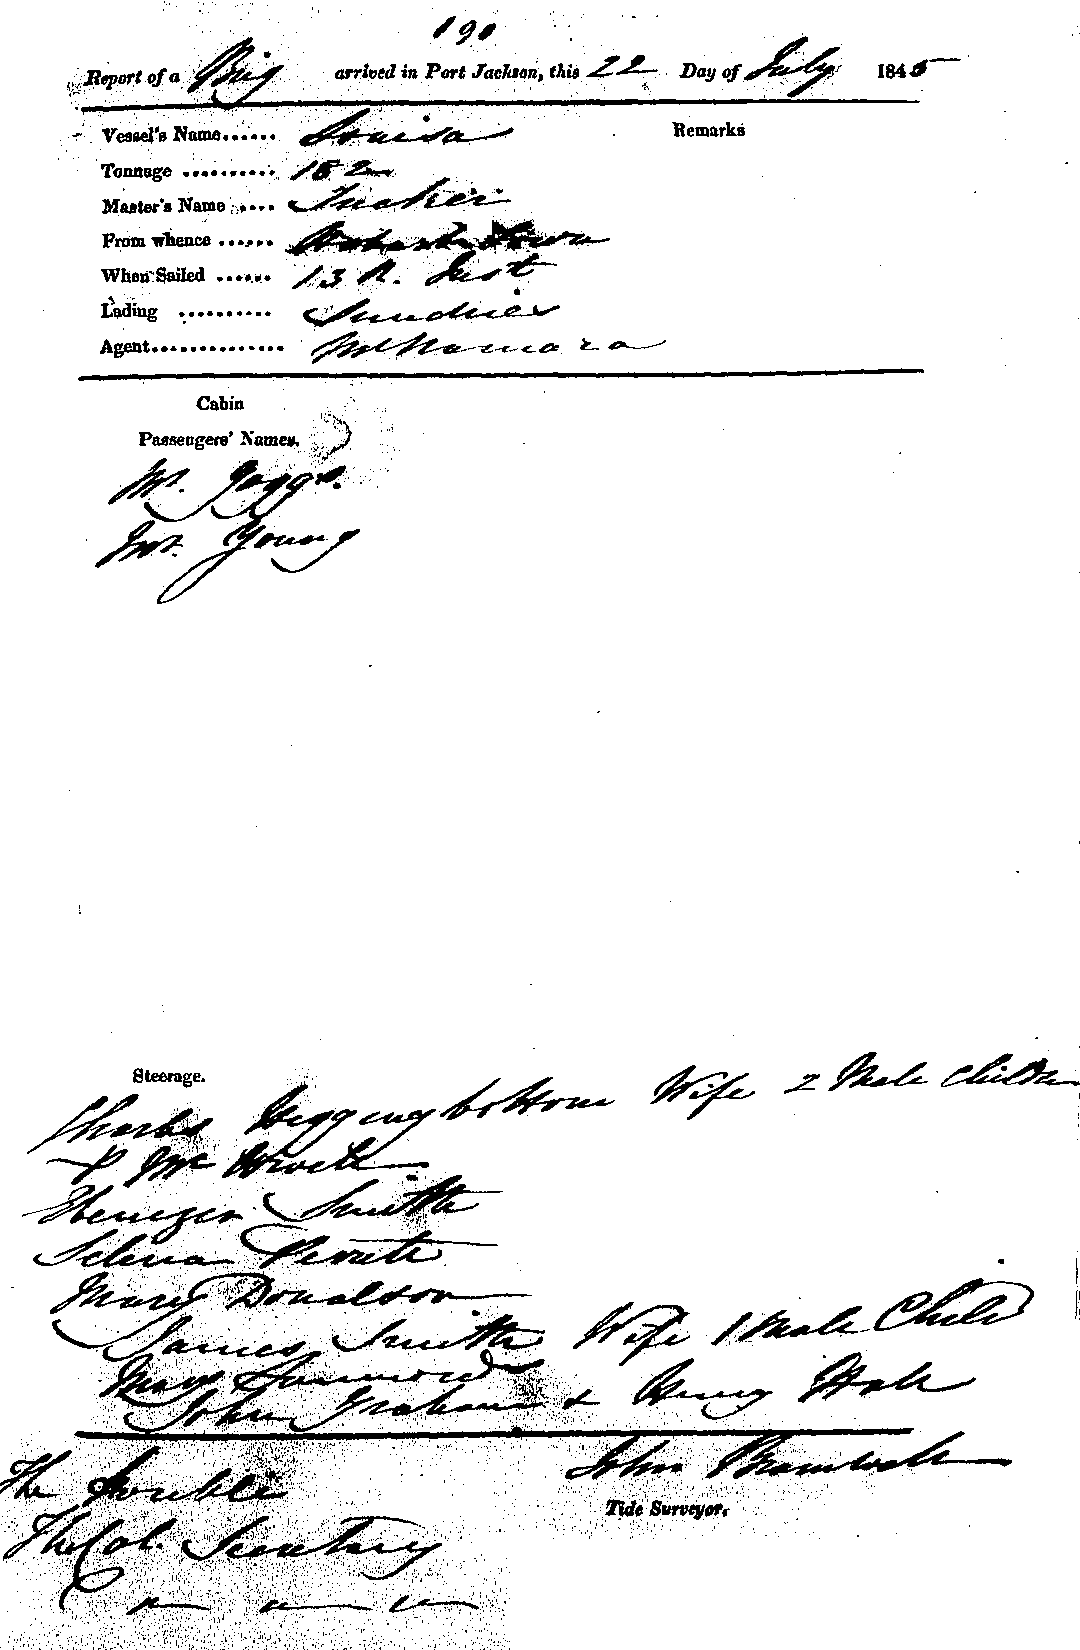 190
Report of a Brig arrived in Port Jackson, this 22 Day of July 1845
Vessel's Name...... Louisa
Remarks
Tonnage .......... 182
Master's Name .... Tucker
From whence ...... Hobart Town
When Sailed ...... 13 Inst
Lading .......... Sundries
Agent.............. McNamara
Cabin
Passengers' Names.
Mr. Joggs.
Mr. Young
Steerage.
Charles Heggingbottom Wife 2 Male Children
P Mc
Ebenezer Smith
Selina
Mary Donaldson
James Smith Wife 1 Male Child
Mary
John Graham & Henry Hale
John
Tide Surveyor.
The Honble
The Col. Secretary